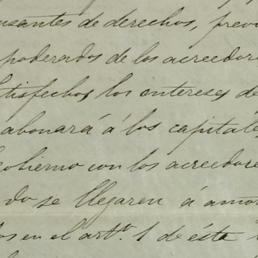 usantes de derechos, previ
poderados de los acreedore
atisfechos los intereses de
abonará á los capitale
Gobierno con los acreedore
do se llegaren á amor
os en el artº. 1 de ésta